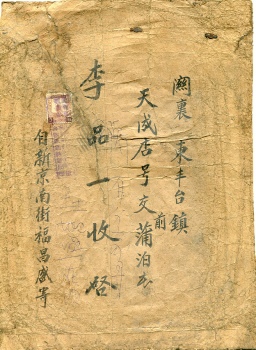 關裏東丰台鎮
天成店号交前蒲泊
李品一收啓
自新京南街福昌盛寄